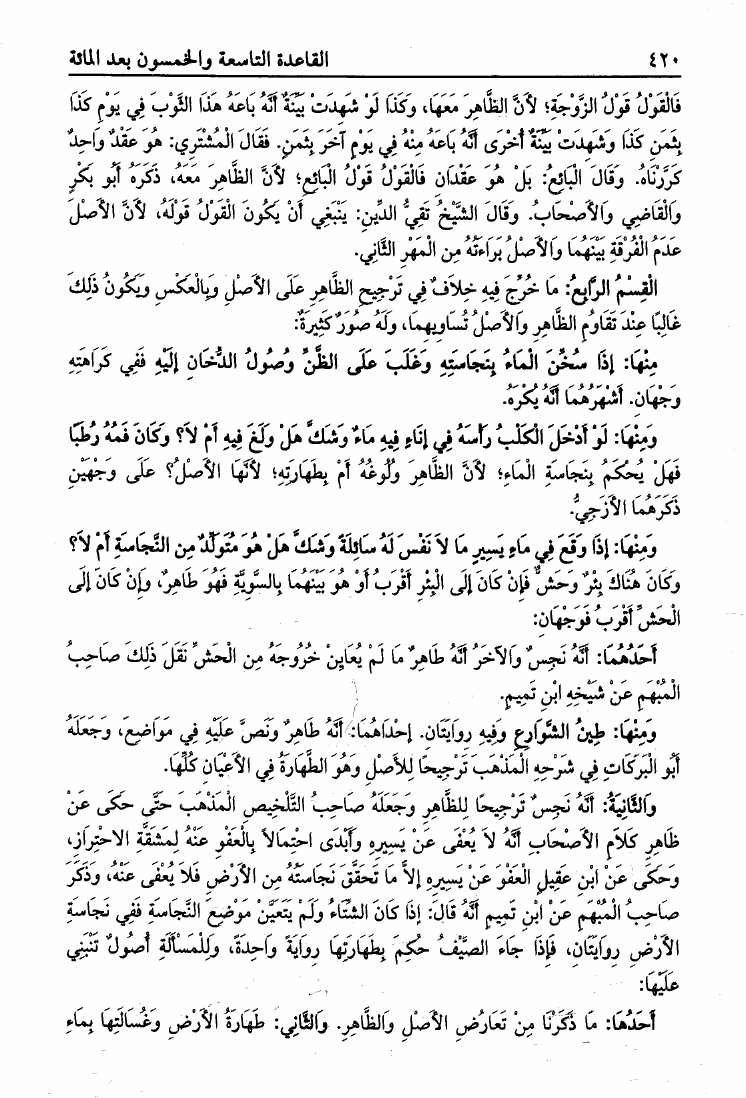 ٤٢٠ القاعدة التاسعة والخمسون بعد المائة
فَالْقَوْلُ قَوْلُ الزَّوْجَةِ؛ لأَنَّ الظَّاهِرَ مَعَهَا، وَكَذَا لَوْ شَهِدَتْ بَيِّنَةٌ أَنَّهُ بَاعَهُ هَذَا الثَّوْبَ فِي يَوْمِ كَذَا
بِثَمَنِ كَذَا وَشَهِدَتْ بَيِّنَةٌ أُخْرَى أَنَّهُ بَاعَهُ مِنْهُ فِي يَوْمٍ آخَرَ بِثَمَنٍ. فَقَالَ الْمُشْتَرِي: هُوَ عَقْدٌ وَاحِدٌ
كَرَّرْنَاهُ. وَقَالَ الْبَائِعُ: بَلْ هُوَ عَقْدَانِ فَالْقَوْلُ قَوْلُ الْبَائِعِ؛ لأَنَّ الظَّاهِرَ مَعَهُ، ذَكَرَهُ أَبُو بَكْرٍ
وَالْقَاضِي وَالأَصْحَابُ. وَقَالَ الشَّيْخُ تَقِيُّ الدِّينِ: يَنْبَغِي أَنْ يَكُونَ الْقَوْلُ قَوْلَهُ، لأَنَّ الأَصْلَ
عَدَمُ الْفُرْقَةِ بَيْنَهُمَا وَالأَصْلُ بَرَاءَتُهُ مِنَ الْمَهْرِ الثَّانِي.
الْقِسْمُ الرَّابِعُ: مَا خُرِّجَ فِيهِ خِلاَفٌ فِي تَرْجِيحِ الظَّاهِرِ عَلَى الأَصْلِ وَبِالْعَكْسِ وَيَكُونُ ذَلِكَ
غَالِبًا عِنْدَ تَقَاوُمِ الظَّاهِرِ وَالأَصْلُ تُسَاوِيهِمَا، وَلَهُ صُوَرٌ كَثِيرَةٌ:
مِنْهَا: إِذَا سُخِّنَ الْمَاءُ بِنَجَاسَتِهِ وَغَلَبَ عَلَى الظَّنِّ وُصُولُ الدُّخَانِ إِلَيْهِ فَفِي كَرَاهَتِهِ
وَجْهَانِ. أَشْهَرُهُمَا أَنَّهُ يُكْرَهُ.
وَمِنْهَا: لَوْ أَدْخَلَ الْكَلْبُ رَأْسَهُ فِي إِنَاءٍ فِيهِ مَاءٌ وَشَكَّ هَلْ وَلَغَ فِيهِ أَمْ لاَ؟ وَكَانَ فَمُهُ رَطْبًا
فَهَلْ يُحْكَمُ بِنَجَاسَةِ الْمَاءِ؛ لأَنَّ الظَّاهِرَ وُلُوغُهُ أَمْ بِطَهَارَتِهِ؛ لأَنَّهَا الأَصْلُ؟ عَلَى وَجْهَيْنِ
ذَكَرَهُمَا الأَزَجِيُّ.
وَمِنْهَا: إِذَا وَقَعَ فِي مَاءٍ يَسِيرٍ مَا لاَ نَفْسَ لَهُ سَائِلَةً وَشَكَّ هَلْ هُوَ مُتَوَلِّدٌ مِنَ النَّجَاسَةِ أَمْ لاَ؟
وَكَانَ هُنَاكَ بِئْرٌ وَحَشٌّ فَإِنْ كَانَ إِلَى الْبِئْرِ أَقْرَبُ أَوْ هُوَ بَيْنَهُمَا بِالسَّوِيَّةِ فَهُوَ طَاهِرٌ، وَإِنْ كَانَ إِلَى
الْحَشِّ أَقْرَبُ فَوَجْهَانِ:
أَحَدُهُمَا: أَنَّهُ نَجِسٌ وَالآخَرُ أَنَّهُ طَاهِرٌ مَا لَمْ يُعَايِنْ خُرُوجَهُ مِنَ الْحَشِّ نَقَلَ ذَلِكَ صَاحِبُ
الْمُبْهَمِ عَنْ شَيْخِهِ ابْنِ تَمِيمٍ.
وَمِنْهَا: طِينُ الشَّوَارِعِ وَفِيهِ رِوَايَتَانِ. إِحْدَاهُمَا: أَنَّهُ طَاهِرٌ وَنَصَّ عَلَيْهِ فِي مَوَاضِعَ، وَجَعَلَهُ
أَبُو الْبَرَكَاتِ فِي شَرْحِهِ الْمَذْهَبَ تَرْجِيحًا لِلأَصْلِ وَهُوَ الطَّهَارَةُ فِي الأَعْيَانِ كُلِّهَا.
وَالثَّانِيَةُ: أَنَّهُ نَجِسٌ تَرْجِيحًا لِلظَّاهِرِ وَجَعَلَهُ صَاحِبُ التَّلْخِيصِ الْمَذْهَبَ حَتَّى حَكَى عَنْ
ظَاهِرِ كَلاَمِ الأَصْحَابِ أَنَّهُ لاَ يُعْفَى عَنْ يَسِيرِهِ وَأَبْدَى احْتِمَالاً بِالْعَفْوِ عَنْهُ لِمَشَقَّةِ الاحْتِرَازِ،
وَحَكَى عَنْ ابْنِ عَقِيلٍ الْعَفْوَ عَنْ يَسِيرِهِ إِلاَّ مَا تَحَقَّقَ نَجَاسَتُهُ مِنَ الأَرْضِ فَلاَ يُعْفَى عَنْهُ، وَذَكَرَ
صَاحِبُ الْمُبْهَمِ عَنْ ابْنِ تَمِيمٍ أَنَّهُ قَالَ: إِذَا كَانَ الشِّتَاءُ وَلَمْ يَتَعَيَّنْ مَوْضِعَ النَّجَاسَةِ فَفِي نَجَاسَةِ
الأَرْضِ رِوَايَتَانِ، فَإِذَا جَاءَ الصَّيْفُ حُكِمَ بِطَهَارَتِهَا رِوَايَةً وَاحِدَةً، وَلِلْمَسْأَلَةِ أُصُولٌ تَنْبَنِي
عَلَيْهَا:
أَحَدُهَا: مَا ذَكَرْنَا مِنْ تَعَارُضِ الأَصْلِ وَالظَّاهِرِ. وَالثَّانِي: طَهَارَةُ الأَرْضِ وَغُسَالَتِهَا بِمَاءِ